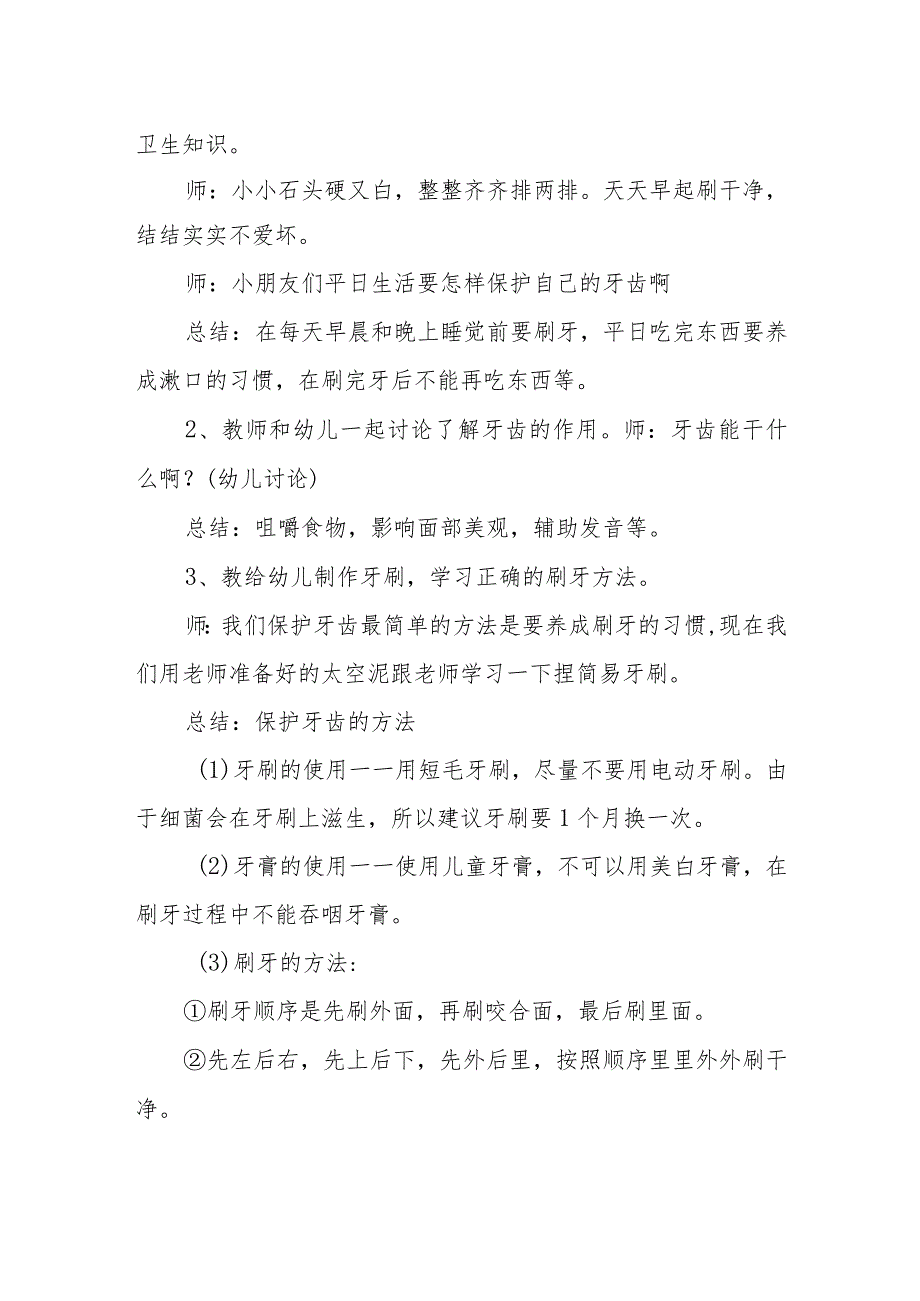 卫生知识。
师：小小石头硬又白，整整齐齐排两排。天天早起刷干净，
结结实实不爱坏。
师：小朋友们平日生活要怎样保护自己的牙齿啊
总结：在每天早晨和晚上睡觉前要刷牙，平日吃完东西要养
成漱口的习惯，在刷完牙后不能再吃东西等。
2、教师和幼儿一起讨论了解牙齿的作用。师：牙齿能干什
么啊？(幼儿讨论)
总结：咀嚼食物，影响面部美观，辅助发音等。
3、教给幼儿制作牙刷，学习正确的刷牙方法。
师：我们保护牙齿最简单的方法是要养成刷牙的习惯,现在我
们用老师准备好的太空泥跟老师学习一下捏简易牙刷。
总结：保护牙齿的方法
(1)牙刷的使用一一用短毛牙刷，尽量不要用电动牙刷。由
于细菌会在牙刷上滋生，所以建议牙刷要1个月换一次。
(2)牙膏的使用一一使用儿童牙膏，不可以用美白牙膏，在
刷牙过程中不能吞咽牙膏。
(3)刷牙的方法:
①刷牙顺序是先刷外面，再刷咬合面，最后刷里面。
②先左后右，先上后下，先外后里，按照顺序里里外外刷干
净。